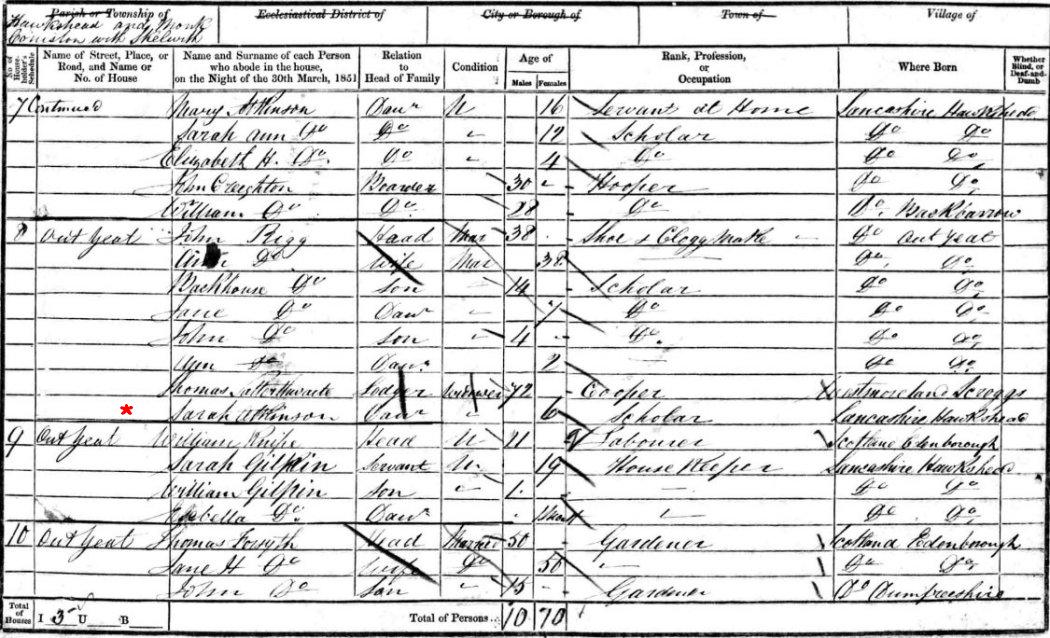 Parish or Township of Ecclesiastical District of City or Borough of Town of Village of
Hawkshead and Monk
Coniston with Skelwith
No. of House-holder's Schedule Name of Street, Place, or Road, and Name or No. of House Name and Surname of each Person who abode in the house, on the Night of the 30th March, 1851 Relation to Head of Family Condition Age of Males Females Rank, Profession, or Occupation Where Born Whether Blind, or Deaf-and-Dumb
7 Continued Mary Atkinson Daur U 16 Servant at Home Lancashire Hawkshede
Sarah Ann Do Do 12 Scholar Do Do
Elizabeth H. Do Do 4 Do Do Do
John Creighton Boarder 30 Hooper Do Do
William Do Do 28 Do Do Backbarrow
8 Out Yeat John Rigg Haad Mar 38 Shoe & Clogg Make Do Out Yeat
Do Wife Mar 38 Do Do
Backhouse Do Son 14 Scholar Do Do
Jane Do Daur 7 Do Do Do
John Do Son 4 Do Do Do
Ann Do Daur 2 Do Do
Thomas Satterthwaite Lodger Widower 72 Cooper Westmoreland Scroggs
* Sarah Atkinson Daur 6 Scholar Lancashire Hawkshead
9 Out Yeat William Knipe Head U 21 Labourer Scotlane Edenborough
Sarah Gilpin Servant U 19 House Keeper Lancashire Hawkshede
William Gilpin Son 1 Do Do
Isabella Do Daur Do Do
10 Out Yeat Thomas Forsyth Head Married 50 Gardener Scotland Edenborough
Jane H Do Wife Do 50 Do Do
John Do Son 15 Gardener Do Dumfreeshire
Total of Houses I 3 U B Total of Persons 10 10